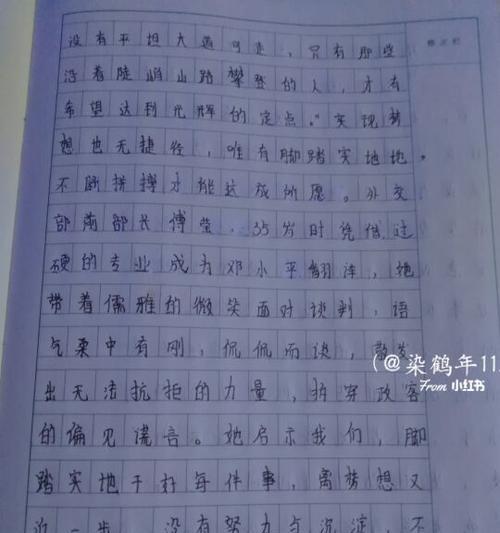 没有平坦大道可走，只有那些
沿着陡峭山路攀登的人，才有
希望达到光辉的定点。"实现梦
想也无捷径，唯有脚踏实地地，
不断拼搏才能达成所愿。外交
部前部长傅莹，35岁时凭借过
硬的专业成为邓小平翻译，她
带着儒雅的微笑面对谈判，语
气柔中有刚，侃侃而谈，散发
出无法抗拒的力量，拆穿政客
的偏见谎言。她启示我们，脚
踏实地干好每件事，离梦想又
近一步。没有努力与沉淀，不
修改栏
(@染鹤年11
From 小红书